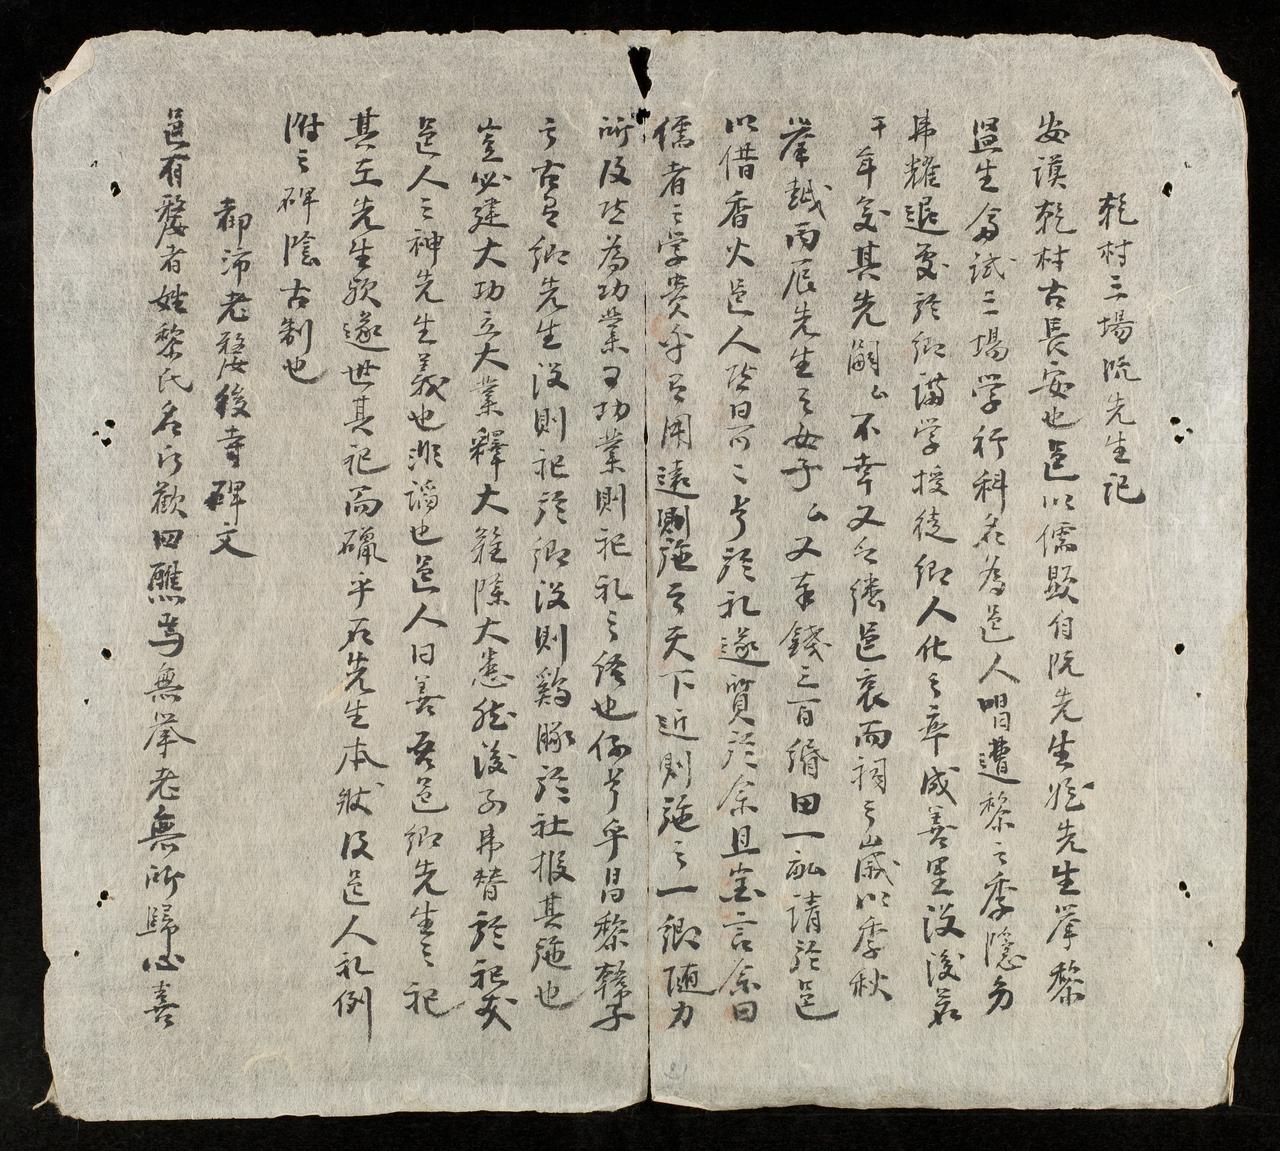 乾村三場阮先生記
安謨乾村古長安也邑以儒顯自阮先生始先生举黎
進生侖試三場学行科名為邑人唱遭黎之季隱多
弗耀退處於鄉講学授徒鄉人化之率成善里没後若
干年矣其先嗣厶不幸又亡继邑哀而祠之歲以季秋
举越丙辰先生之女子厶又奉錢三百緡田一畝請於邑
以借香火邑人皆曰可二号於礼遂質於余且宝言余曰
儒者之学貴乎有用遠則施之天下近則施之一鄉随力
所及皆為功業有功業則祀礼之經也何异乎昌黎韓子
之古者鄉先生没則祀於鄉没則鷄豚於社报其施也
豈必建大功立大業釋大难除大患然後子弗替於祀哉
邑人之神先生義也非謟也邑人曰善吾邑鄉先生之祀
其在先生欤遂世其祀而礪乎石先生本狀及邑人礼例
附之碑陰古制也
都沛老婺後寺碑文
邑有婺者姓黎氏名以歡田醮焉無举老無所歸心喜